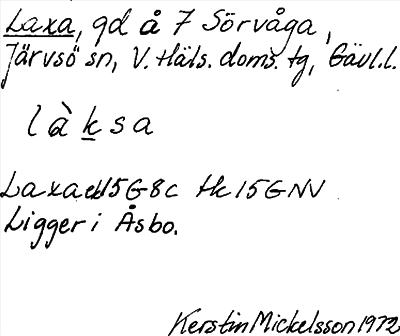 Laxa, gd å 7 Sörvåga,
Järvsö sn, V. Häls. doms. tg, Gävl.l.
làksa
Laxa ek15G8c tk15GNV
Ligger i Åsbo.
Kerstin Mickelsson 1972